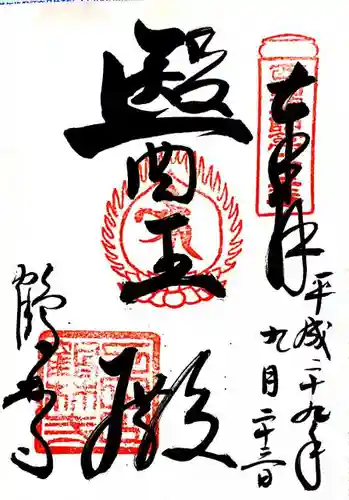 奉拝
平成二十九年
九月二十三日
醫王殿
鶴林寺